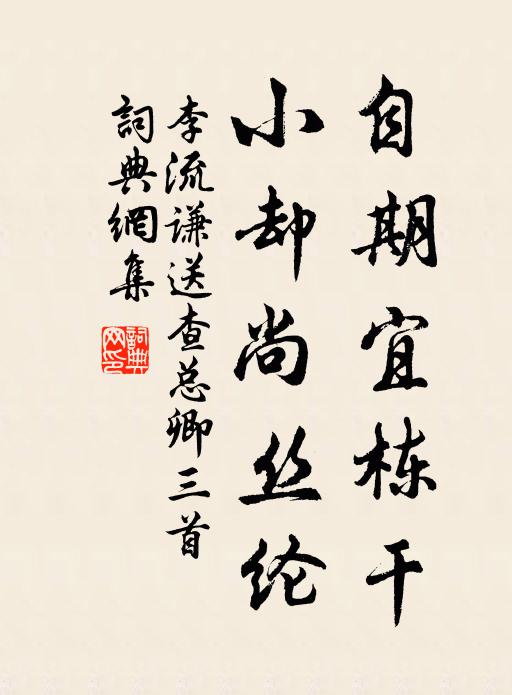 自期宜栋干
小却尚丝纶
李流谦送查总卿三首
词典網集
詞典网印